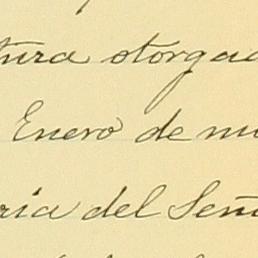 tura otorgad
Enero de mi
ria del Señ